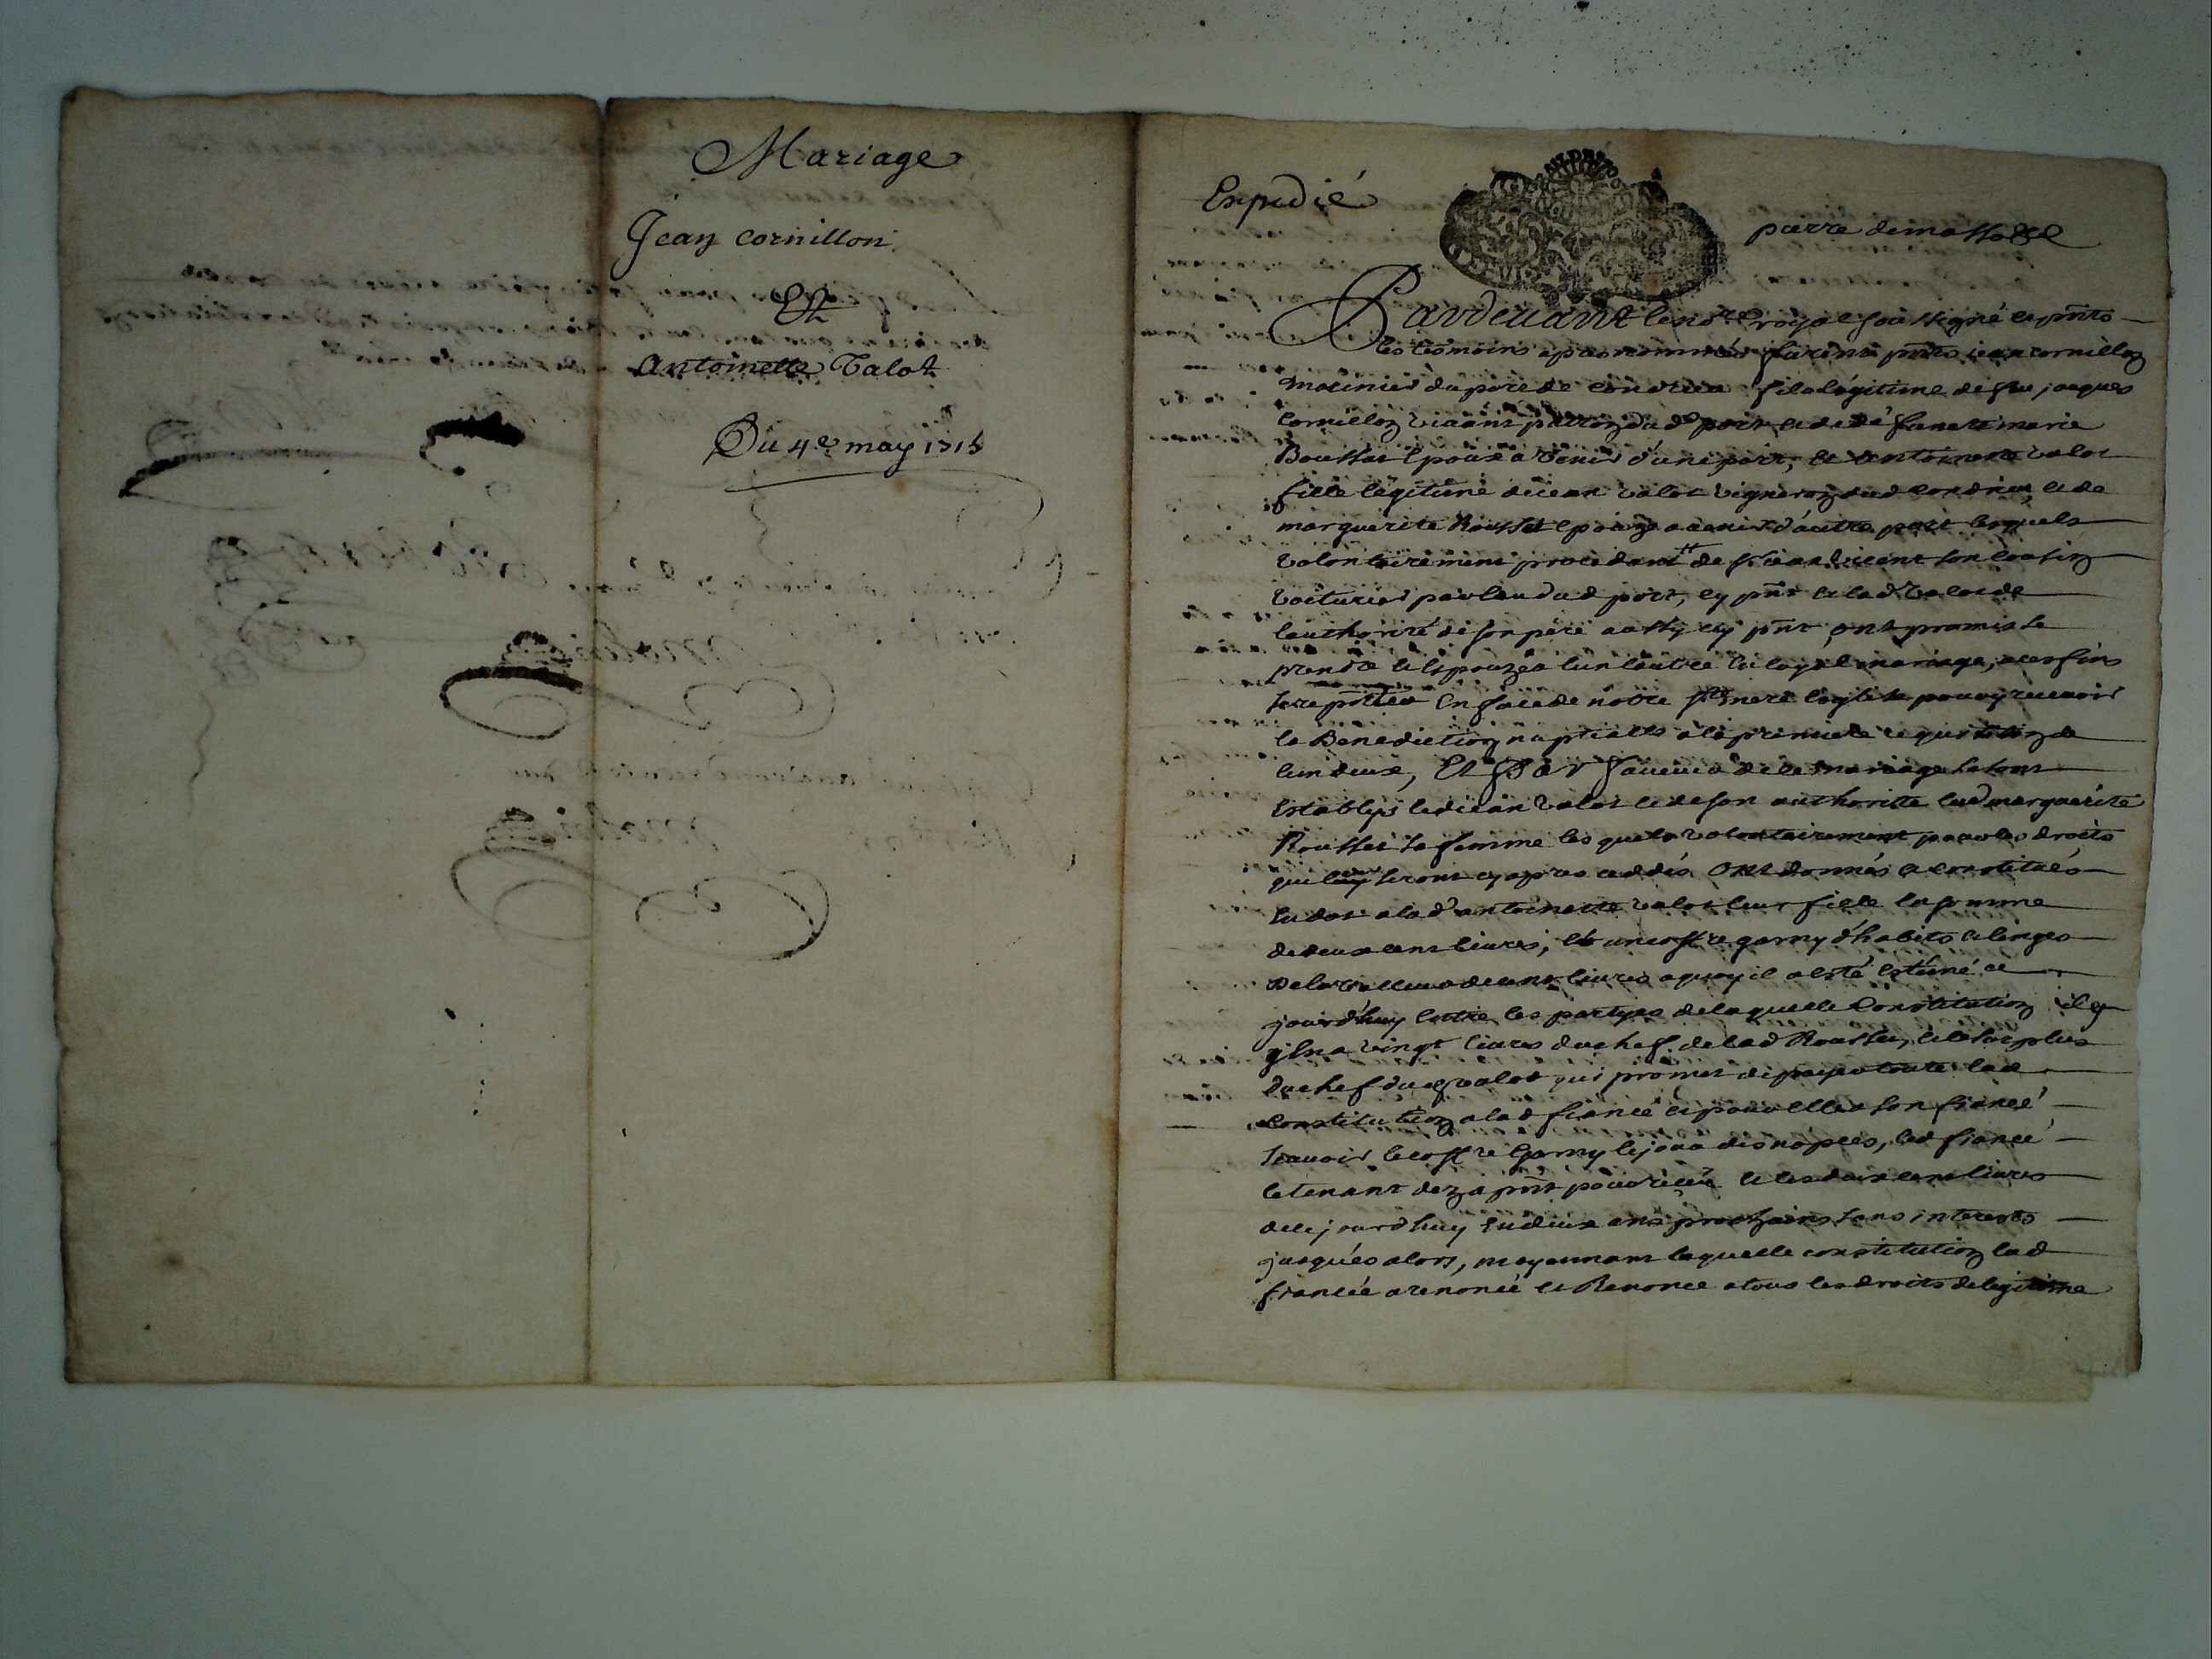 Mariage
Jean cornillon
Et
Antoinette Valot
Du 4e may 1715
Expedié
pierre dematta
Pardevant le notre royal soussigné et pnts
les tesmoins apres nommés furent pnts jean cornillon
marinier du port de condrieu fils légitime de feu jacques
Cornillon vivant patron dud port et de dé marie
Bousset époux a venir d'une part, et antoinette valot
fille légitime de jean valot vigneron dud condrieu et de
marguerite Rousset epouze a venir d'autre part lesquels
volontairement procedant de son cousin
voiturier par leau dud port, cy pnt et lad valot de
lauthorité de son pere aussy cy pnt, ont promis se
prendre et espouzer lun lautre en loyal mariage, a ces fins
se en face de notre ste mere esglise pour y recevoir
la Benediction nuptialle a la premiere requisition de
lun deux, Et Par faveur de ce mariage se sont
establys led jean valot et de son authorité lad marguerite
Rousset sa femme lesquels volontairement pour les droits
qui seront cy apres ceddés ont donnés et constitués
en dot a lad antoinette valot leur fille la somme
de deux cent livres, et un coffre garny d'habits et linges
de la valleur de cent livres a quoy il a esté estimé ce
jourd'huy entre les partyes de laquelle Constitution il y
en a vingt livres du chef de lad Rousset, et le surplus
du chef dud valot qui promet de payer toute lad
constitution a lad fiancé et pour elle a son fiancé
scavoir le coffre garny le jour des nopces, led fiancé
le tenant deza pnt pour reçeu et les deux cent livres
de ce jourdhuy en deux ans prochains sans interests
jusques alors, moyennant laquelle constitution lad
fiancée a renoncé et Renonce a tous les droits de legitime